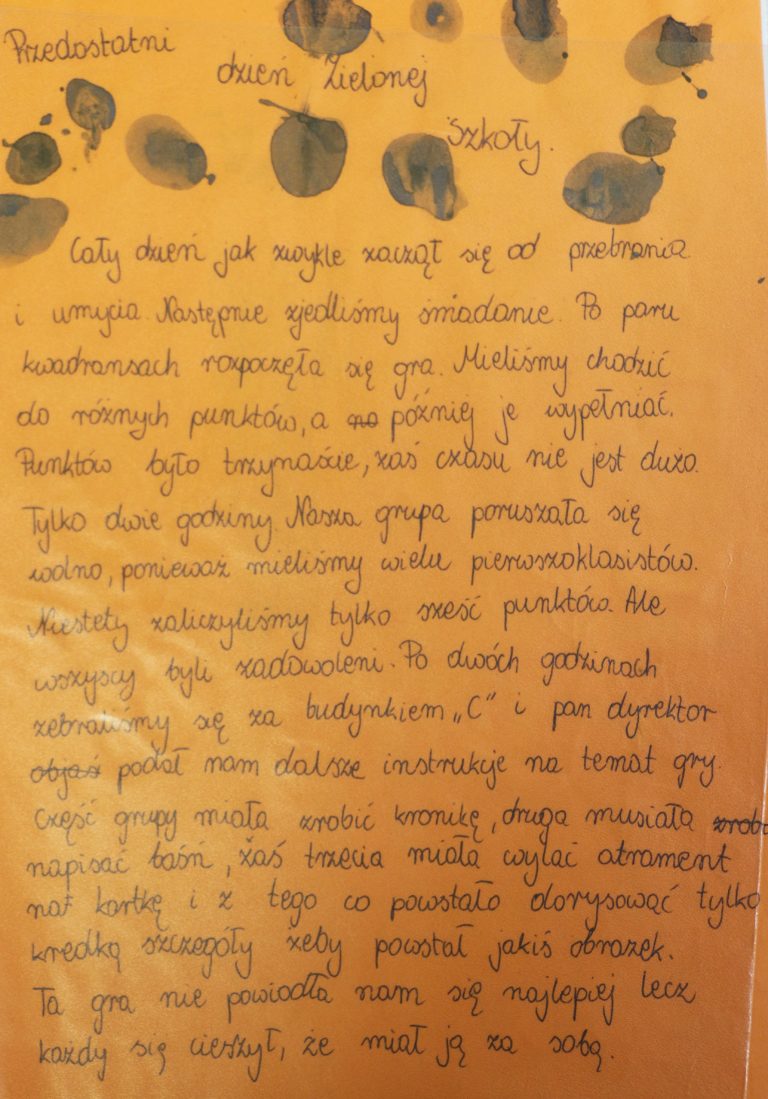 Przedostatni
dzień Zielonej
Szkoły.
Cały dzień jak zwykle zaczął się od przebrania
i umycia. Następnie zjedliśmy śniadanie. Po paru
kwadransach rozpoczęła się gra. Mieliśmy chodzić
do różnych punktów, a na później je wypełniać.
Punktów było trzynaście, zaś czasu nie jest dużo.
Tylko dwie godziny. Nasza grupa poruszała się
wolno, ponieważ mieliśmy wielu pierwszoklasistów.
Niestety zaliczyliśmy tylko sześć punktów. Ale
wszyscy byli zadowoleni. Po dwóch godzinach
zebraliśmy się za budynkiem „C" i pan dyrektor
objaś podał nam dalsze instrukcje na temat gry.
Część grupy miała zrobić kronikę, druga musiała zrob
napisać baśń, zaś trzecia miała wylać atrament
na kartkę i z tego co powstało dorysować tylko
kredką szczegóły żeby powstał jakiś obrazek.
Ta gra nie powiodła nam się najlepiej lecz
każdy się cieszył, że miał ją za sobą.